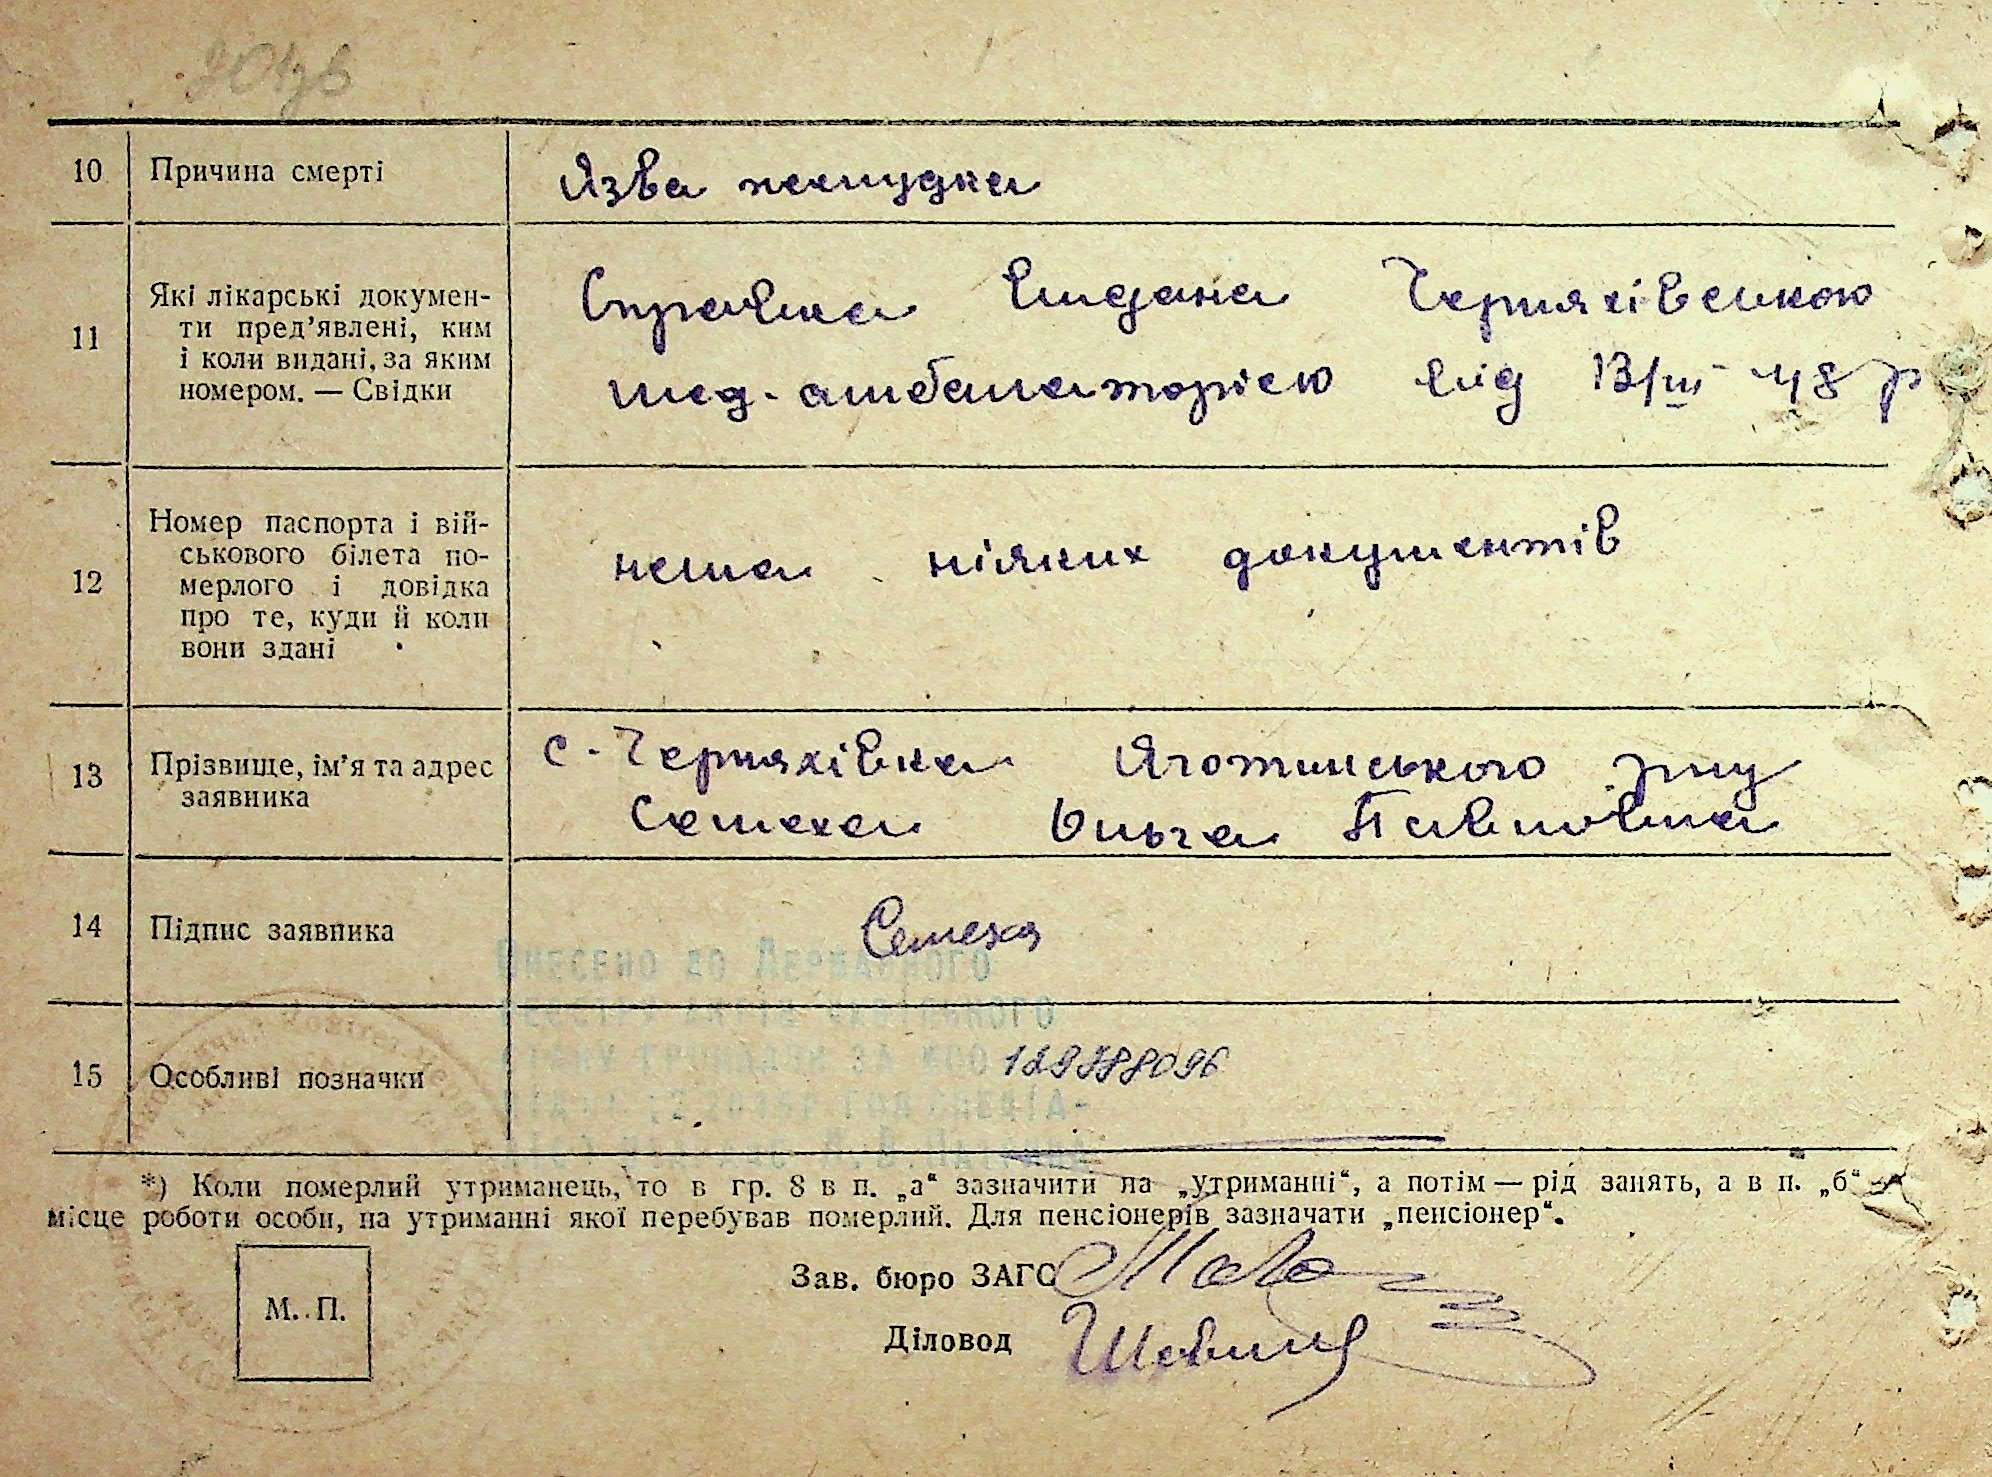 10 Причина смерті Язва желудка
11 Які лікарські докумен-
ти пред’явлені, ким
і коли видані, за яким
номером. — Свідки
Справка видана Черняхівською
мед. амбалаторією від 13/III 48 р
12 Номер паспорта і вій-
ськового білета по-
мерлого і довідка
про те, куди й коли
вони здані
нема ніяких документів
13 Прізвище, ім’я та адрес
заявника
с. Черняхівка Яготинського р-ну
Ольга Павловна
14 Підпис заявника
Внесено до Державного
15 Особливі позначки
*) Коли померлий утриманець, то в гр. 8 в п. „а“ зазначити на „утриманні“, а потім — рід занять, а в п. „б“ —
місце роботи особи, на утриманні якої перебував померлий. Для пенсіонерів зазначати „пенсіонер“.
Зав. бюро ЗАГС
М. П.
Діловод